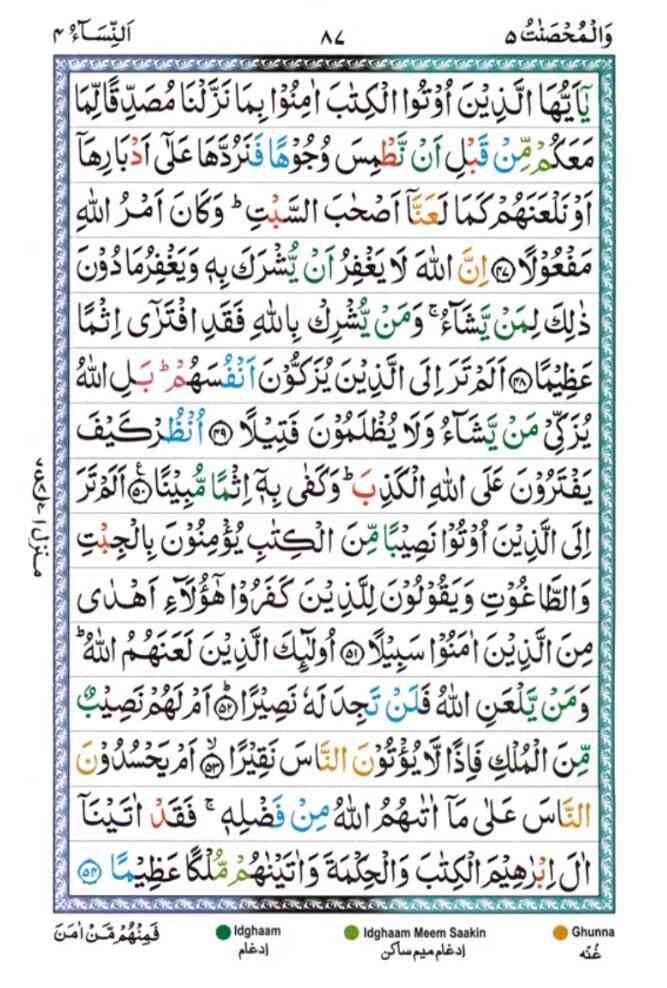 وَالْمُحْصَنٰتُ ٥
٨٧
اَلنِّسَآءُ ٤
يٰۤاَيُّهَا الَّذِيْنَ اُوْتُوا الْكِتٰبَ اٰمِنُوْا بِمَا نَزَّلْنَا مُصَدِّقًا لِّمَا
مَعَكُمْ مِّنْ قَبْلِ اَنْ نَّطْمِسَ وُجُوْهًا فَنَرُدَّهَا عَلٰۤى اَدْبَارِهَاۤ
اَوْ نَلْعَنَهُمْ كَمَا لَعَنَّاۤ اَصْحٰبَ السَّبْتِ ؕ وَكَانَ اَمْرُ اللّٰهِ
مَفْعُوْلًا ﴿٤٧﴾ اِنَّ اللّٰهَ لَا يَغْفِرُ اَنْ يُّشْرَكَ بِهٖ وَيَغْفِرُ مَا دُوْنَ
ذٰلِكَ لِمَنْ يَّشَآءُ ۚ وَمَنْ يُّشْرِكْ بِاللّٰهِ فَقَدِ افْتَرٰۤى اِثْمًا
عَظِيْمًا ﴿٤٨﴾ اَلَمْ تَرَ اِلَى الَّذِيْنَ يُزَكُّوْنَ اَنْفُسَهُمْ ؕ بَلِ اللّٰهُ
يُزَكِّيْ مَنْ يَّشَآءُ وَلَا يُظْلَمُوْنَ فَتِيْلًا ﴿٤٩﴾ اُنْظُرْ كَيْفَ
يَفْتَرُوْنَ عَلَى اللّٰهِ الْكَذِبَ ؕ وَكَفٰى بِهٖۤ اِثْمًا مُّبِيْنًا ﴿٥٠﴾ اَلَمْ تَرَ
اِلَى الَّذِيْنَ اُوْتُوْا نَصِيْبًا مِّنَ الْكِتٰبِ يُؤْمِنُوْنَ بِالْجِبْتِ
وَالطَّاغُوْتِ وَيَقُوْلُوْنَ لِلَّذِيْنَ كَفَرُوْا هٰۤؤُلَآءِ اَهْدٰى
مِنَ الَّذِيْنَ اٰمَنُوْا سَبِيْلًا ﴿٥١﴾ اُولٰٓئِكَ الَّذِيْنَ لَعَنَهُمُ اللّٰهُ ؕ
وَمَنْ يَّلْعَنِ اللّٰهُ فَلَنْ تَجِدَ لَهٗ نَصِيْرًا ﴿٥٢﴾ اَمْ لَهُمْ نَصِيْبٌ
مِّنَ الْمُلْكِ فَاِذًا لَّا يُؤْتُوْنَ النَّاسَ نَقِيْرًا ﴿٥٣﴾ اَمْ يَحْسُدُوْنَ
النَّاسَ عَلٰى مَاۤ اٰتٰىهُمُ اللّٰهُ مِنْ فَضْلِهٖ ۚ فَقَدْ اٰتَيْنَاۤ
اٰلَ اِبْرٰهِيْمَ الْكِتٰبَ وَالْحِكْمَةَ وَاٰتَيْنٰهُمْ مُّلْكًا عَظِيْمًا ﴿٥٤﴾
منزل ١
فَمِنْهُمْ مَّنْ اٰمَنَ
Idghaam
ادغام
Idghaam Meem Saakin
ادغام میم ساکن
Ghunna
غُنّہ